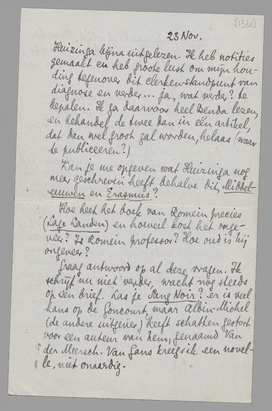 [1935]
23 Nov.
Huizinga bijna uitgelezen. Ik heb notities
gemaakt en heb groote lust om mijn hou-
ding tegenover dit clerken-standpunt van
diagnose en verder... ja, wat verder? te
bepalen. Ik ga daarvoor heel Benda lezen,
en behandel de twee dan in één artikel,
dat dan wel groot zal worden, helaas (waar
te publiceeren?)
Kan je me opgeven wat Huizinga nog
meer geschreven heeft behalve dit, Middel-
eeuwen en Erasmus?
Hoe heet het boek van Romein precies
(Lage Landen) en hoeveel kost het onge-
veer? Is Romein professor? Hoe oud is hij
ongeveer?
Graag antwoord op al deze vragen. Ik
schrijf nu niet verder, wacht nog steeds
op een brief. Las je Sang Noir? er is veel
kans op de Goncourt, maar Albin-Michel
(de andere uitgever) heeft schatten gestort
voor een auteur van hem, genaamd Van
der Meersch. Van Gans kreeg ik een novel-
le, niet onaardig.